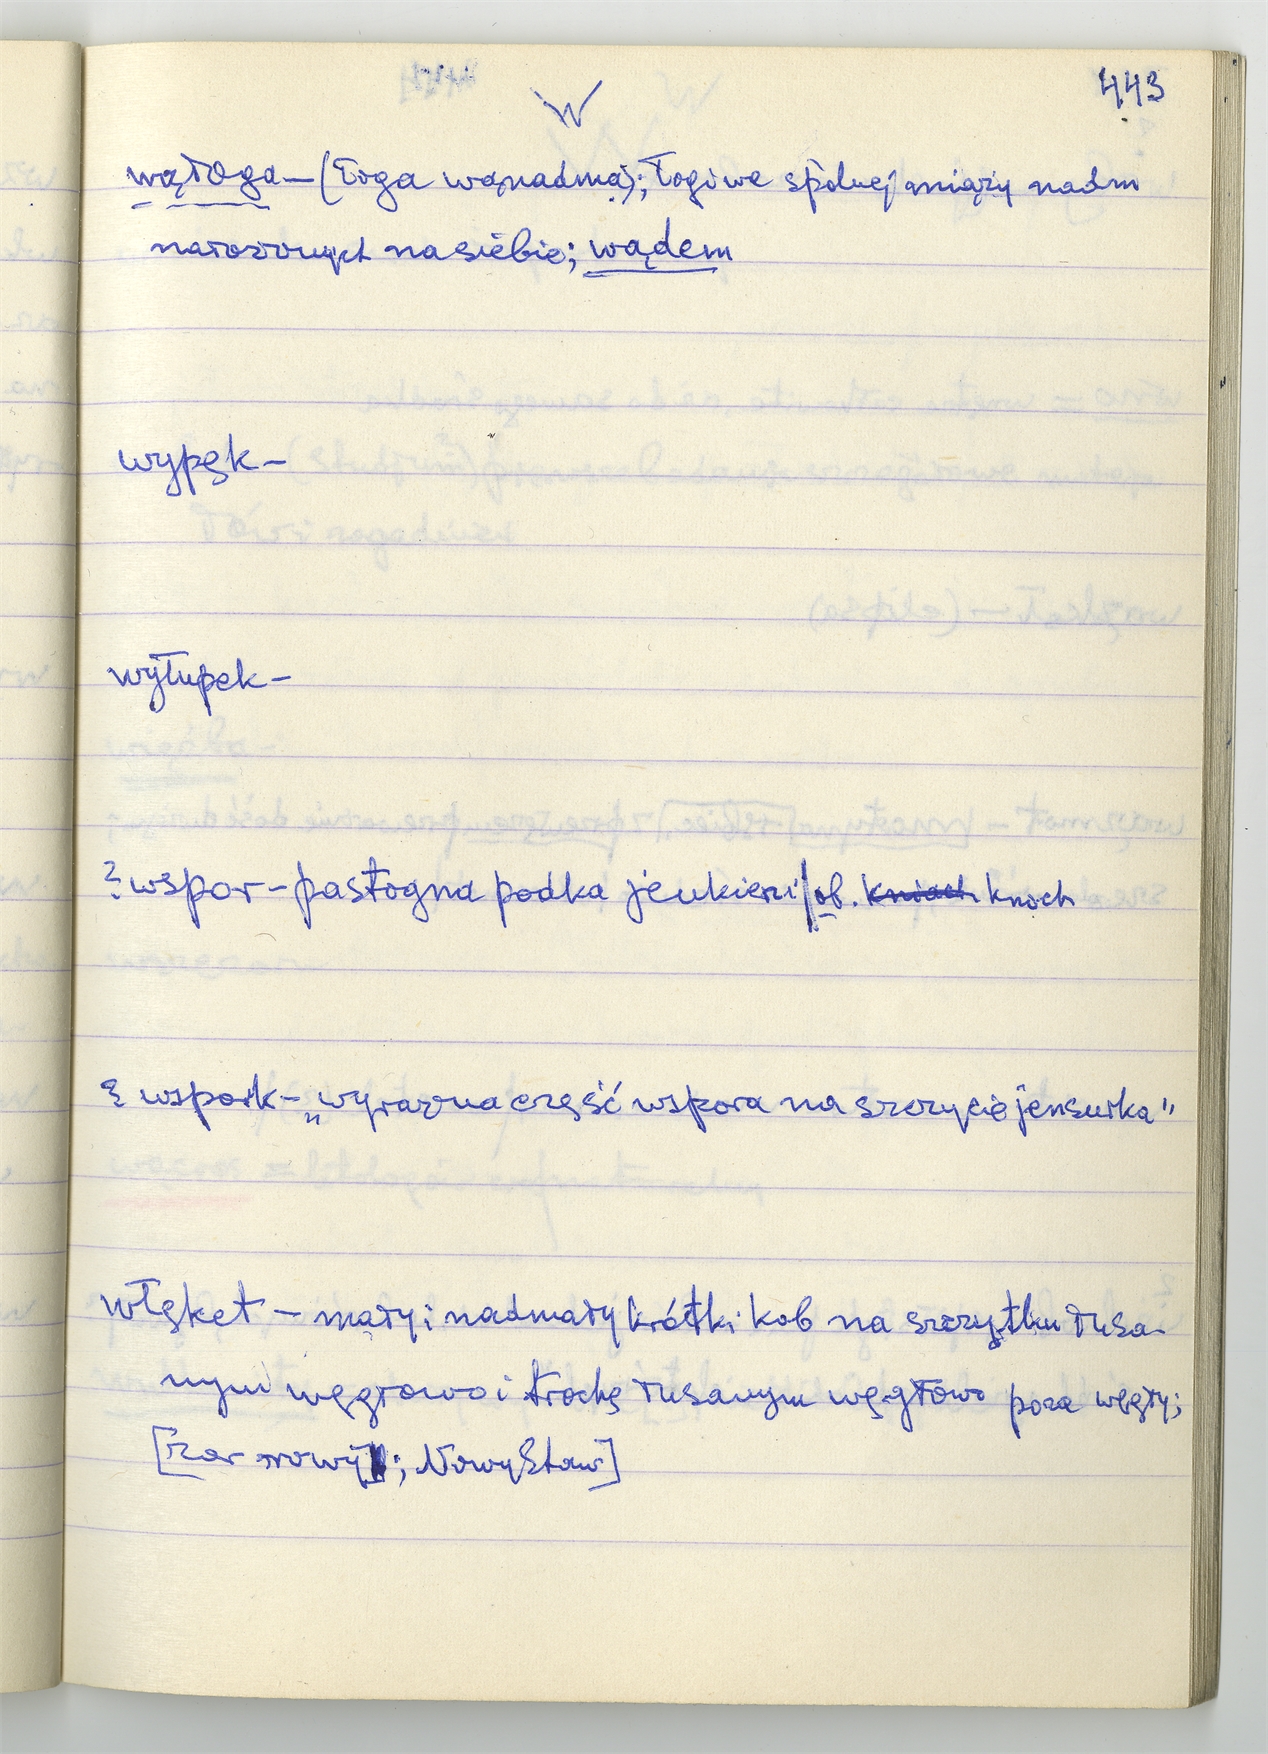 443
W
wąłoga – (łoga wąnadma); łogiwe spólnej miąży nadm
nałożonych na siebie; wądem
wypęk –
wyłupek –
? wspor – pasłogna podka jeukierzi / ob. kniach knoch
? wspork – „wyraźna część wspora na szczycie jensurka"
włęket – mały i nadmały krótki kob na szczytku łusa-
nym węgłowo i trochę łusanym węgłowo poza węgły;
[żar nowy; Nowy Staw]